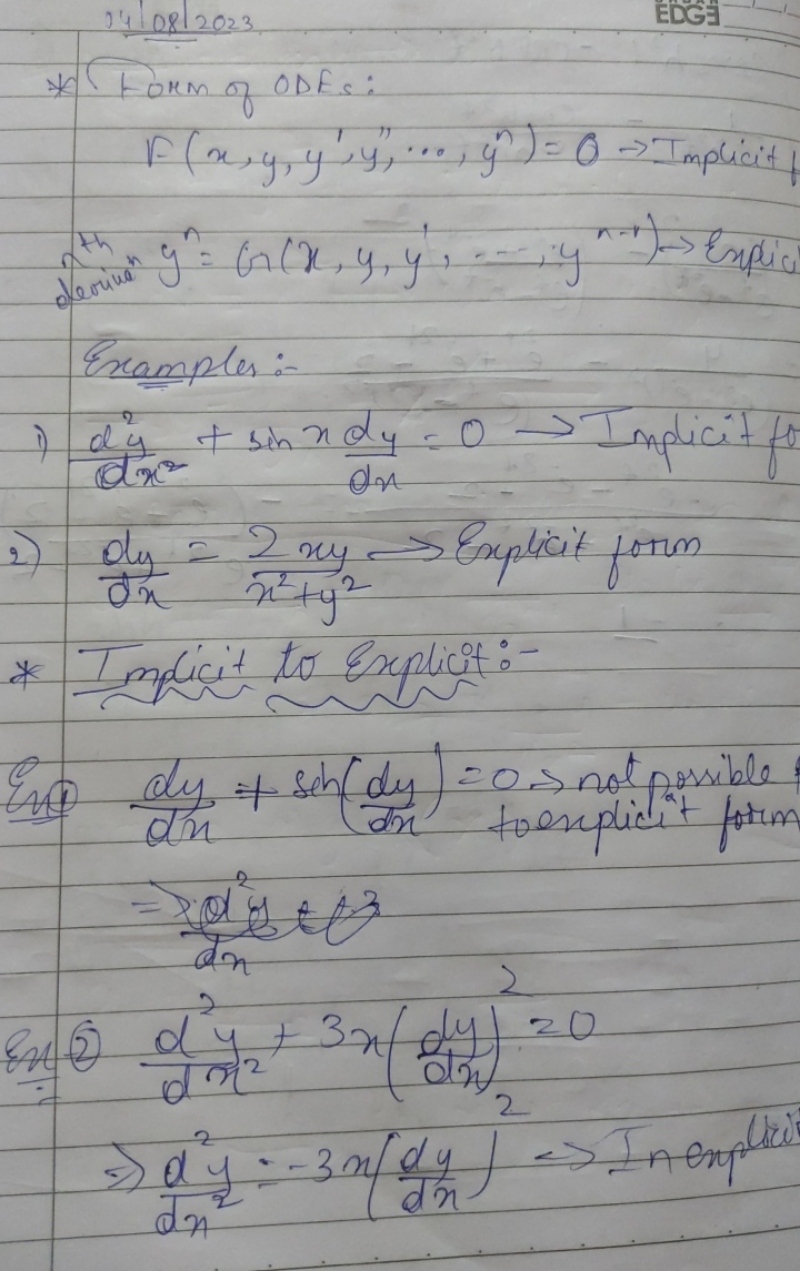 04/08/2023
EDGE
* Form of ODEs:
F(x, y, y', y'', ..., yⁿ) = 0 → Implicit f
nth derivaⁿ yⁿ = G(x, y, y', ----, yⁿ⁻¹) → Explici
Examples:-
1) d²y/dx² + sin x dy/dx = 0 → Implicit fo
2) dy/dx = 2xy/x²+y² → Explicit form
* Implicit to Explicit:-
Ex① dy/dx + sin(dy/dx) = 0 → not possible
to explicit form
Ex② d²y/dx² + 3x(dy/dx)² = 0
⇒ d²y/dx² = -3x(dy/dx)² → In explicit